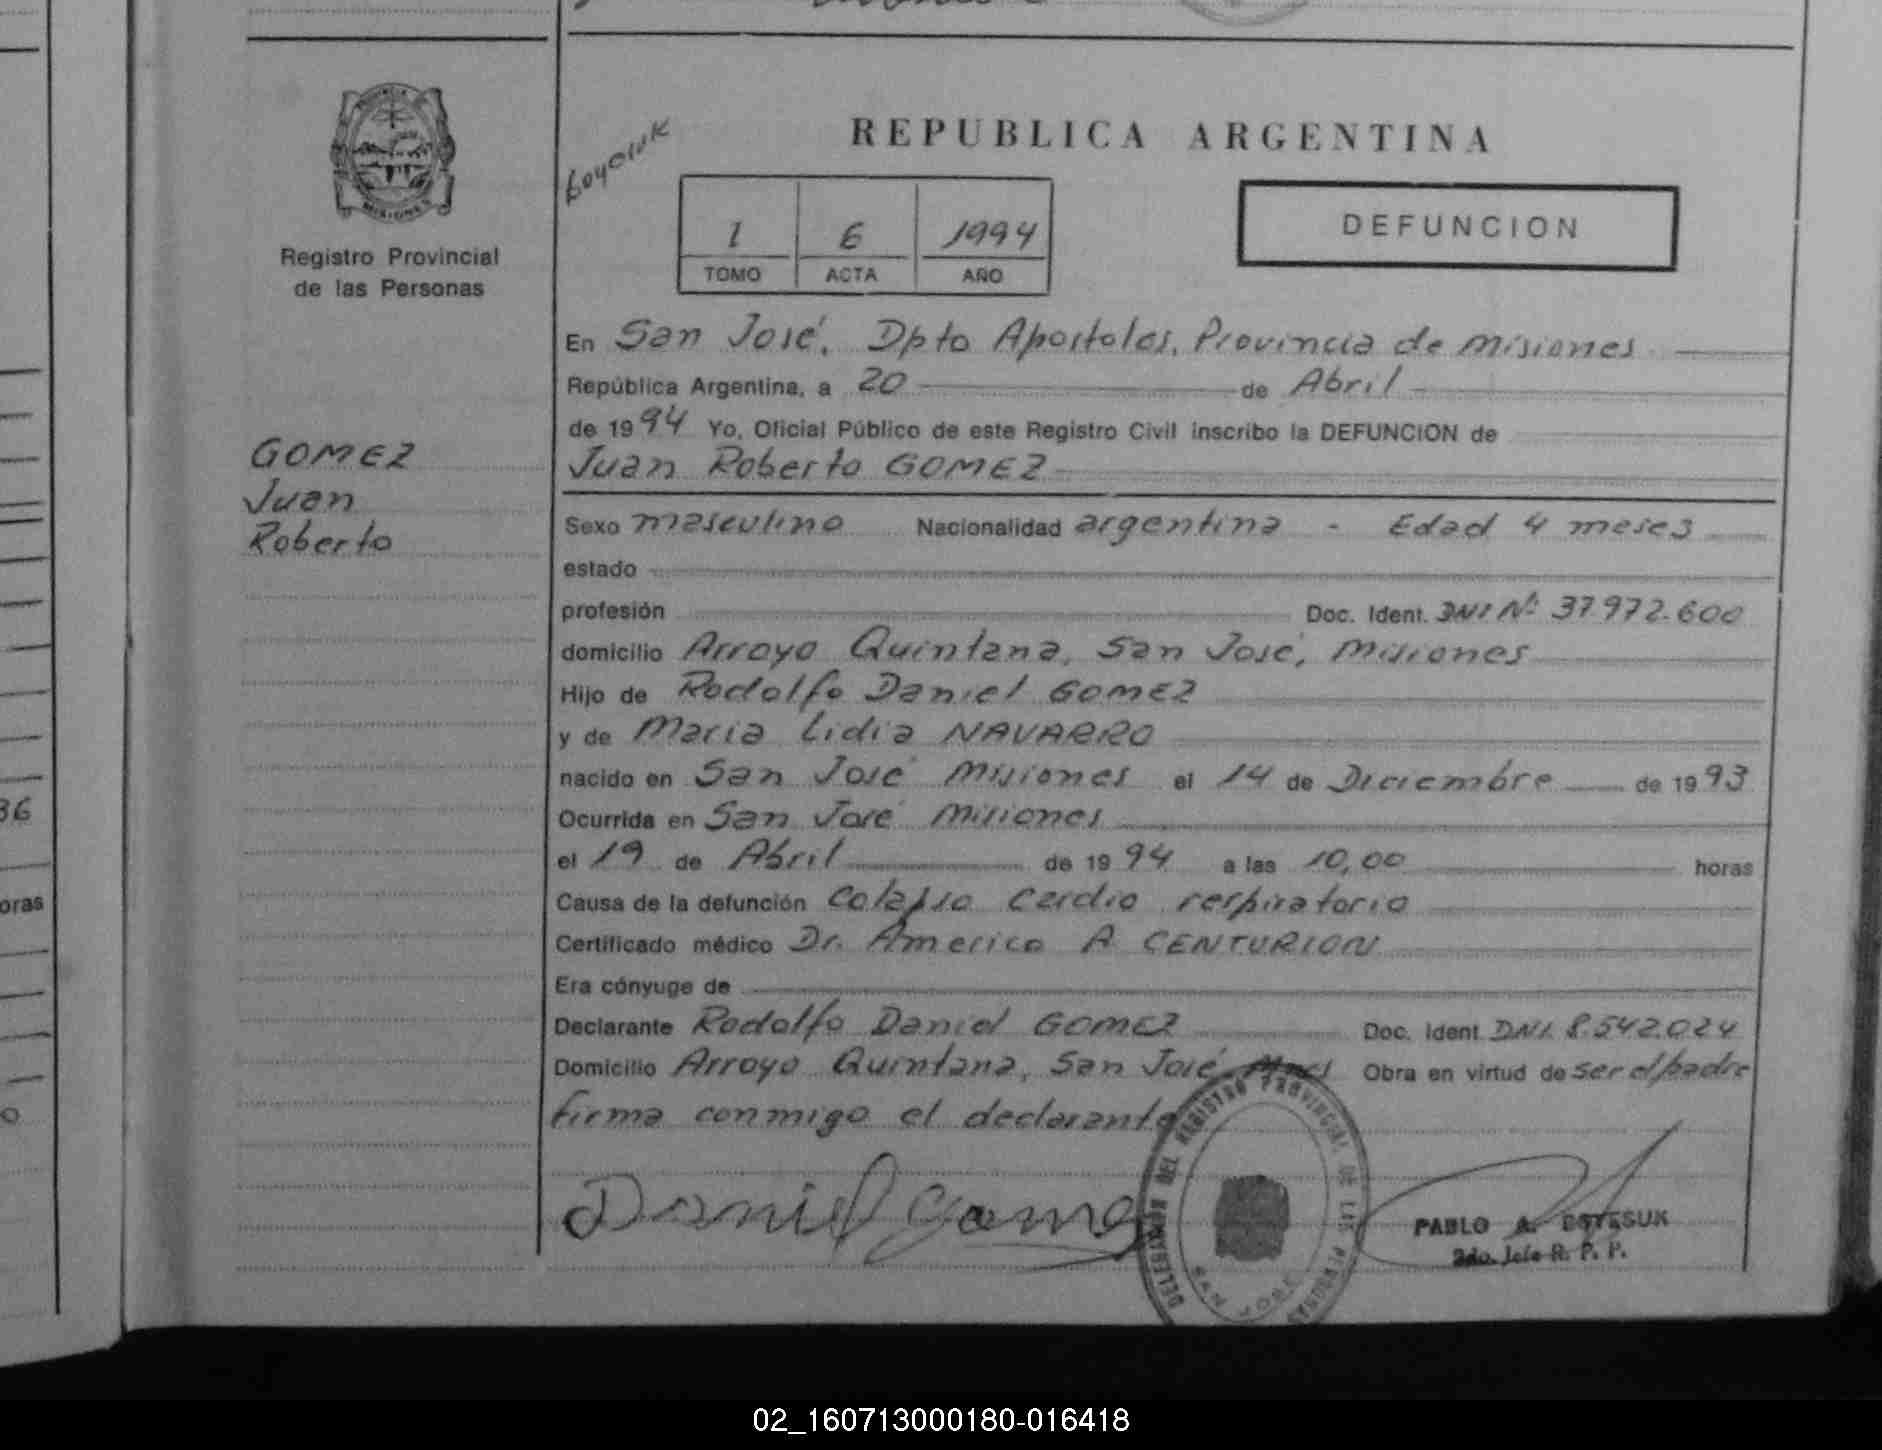 PROVINCIA DE
MISIONES
Registro Provincial
de las Personas
GOMEZ
Juan
Roberto
36
oras
o
REPUBLICA ARGENTINA
1 6 1994
TOMO ACTA AÑO
DEFUNCION
En San José, Dpto Apostoles, Provincia de Misiones
República Argentina, a 20 de Abril
de 1994 Yo, Oficial Público de este Registro Civil inscribo la DEFUNCION de
Juan Roberto GOMEZ
Sexo masculino Nacionalidad argentina - Edad 4 meses
estado
profesión Doc. Ident. DNI Nº 37.972.600
domicilio Arroyo Quintana, San José, Misiones
Hijo de Rodolfo Daniel GOMEZ
y de Maria Lidia NAVARRO
nacido en San José Misiones el 14 de Diciembre de 1993
Ocurrida en San José Misiones
el 19 de Abril de 1994 a las 10,00 horas
Causa de la defunción Colapso Cardio respiratorio
Certificado médico Dr. Americo A CENTURION
Era cónyuge de
Declarante Rodolfo Daniel GOMEZ Doc. Ident. DNI. 8.542.024
Domicilio Arroyo Quintana, San José, Mnes Obra en virtud de ser el padre
firma conmigo el declarante
Daniel Gomez
DELEGACION DEL REGISTRO PROVINCIAL DE LAS PERSONAS
SAN JOSE
PABLO A.
2do. Jefe R. P. P.
02_160713000180-016418